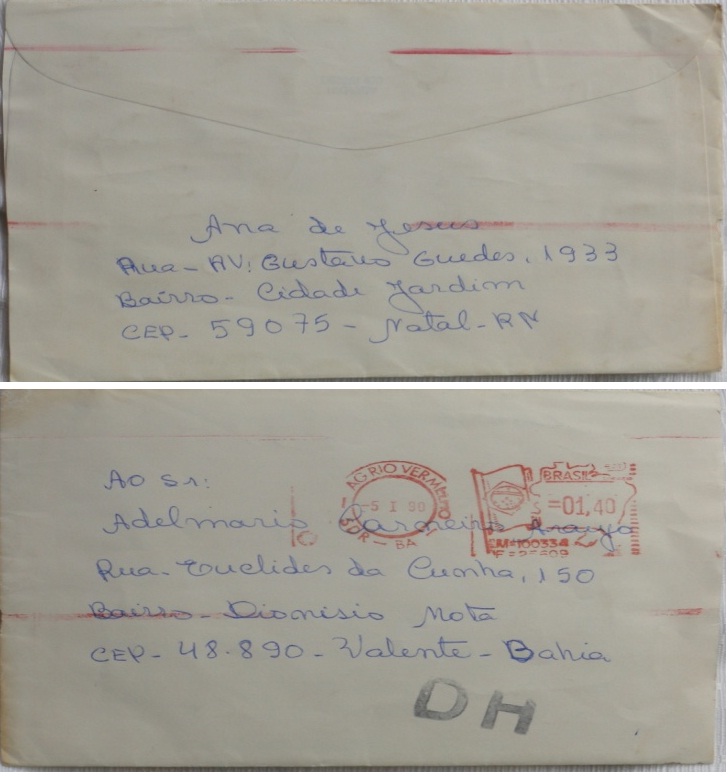 Ana de Jesus
Rua - AV: Gustavo Guedes, 1933
Bairro - Cidade Jardim
CEP - 59075 - Natal - RN
AO Sr:
Adelmario Carneiro Araujo
Rua - Euclides da Cunha, 150
Bairro - Dionisio Mota
CEP - 48.890 - Valente - Bahia
AG RIO VERMELHO
-5 I 90
SDR - BA
BRASIL
=01,40
DH